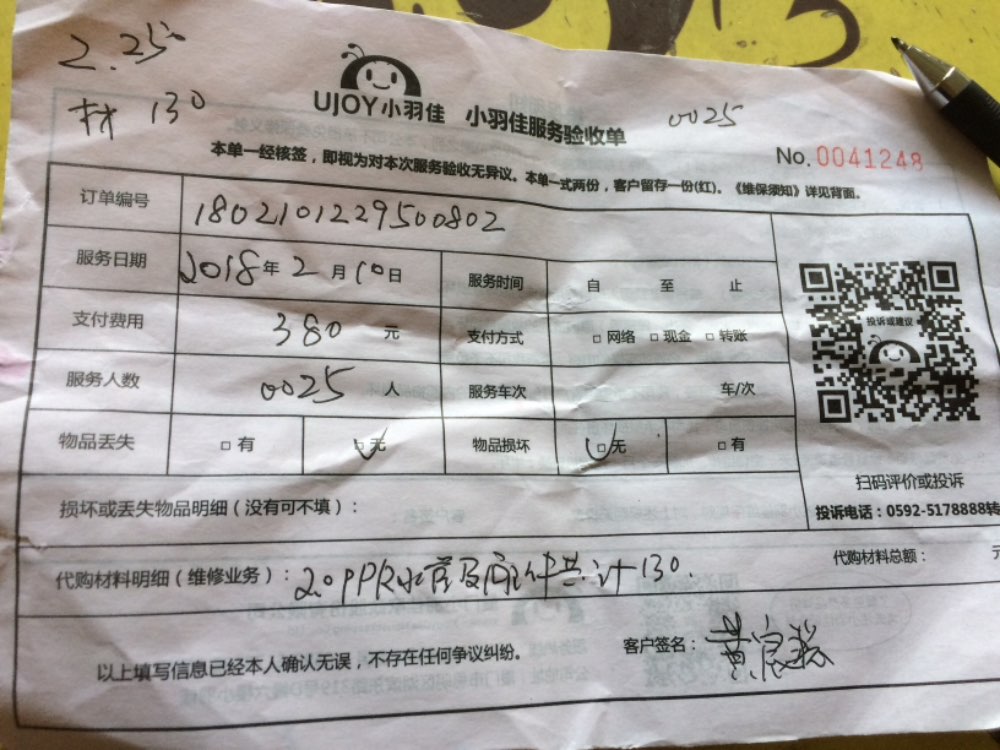 2.25
材 130
UJOY小羽佳 小羽佳服务验收单
0025
No.0041248
本单一经核签，即视为对本次服务验收无异议。本单一式两份，客户留存一份(红)。《维保须知》详见背面。
订单编号 1802101229500802
服务日期 2018年2月10日 服务时间 自 至 止
支付费用 380 元 支付方式 □网络 □现金 □转账
服务人数 0025 人 服务车次 车/次
物品丢失 □有 □无 物品损坏 □无 □有
投诉或建议
扫码评价或投诉
投诉电话：0592-5178888转
损坏或丢失物品明细（没有可不填）：
代购材料明细（维修业务）：20PPR水管及配件共计130.
代购材料总额： 元
以上填写信息已经本人确认无误，不存在任何争议纠纷。
客户签名：黄